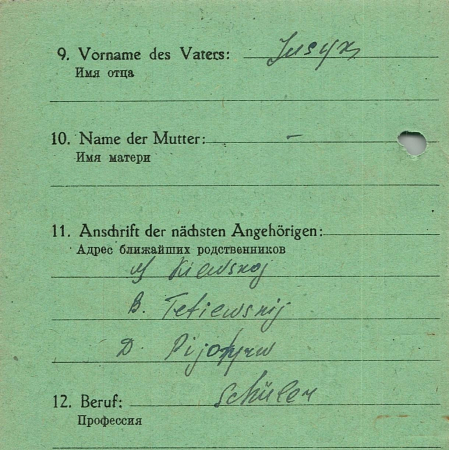 9. Vorname des Vaters: Jusyx
Имя отца
10. Name der Mutter: –
Имя матери
11. Anschrift der nächsten Angehörigen:
Адрес ближайших родственников
Kiewskoj
B. Tetiewskij
D.
12. Beruf: Schüler
Профессия